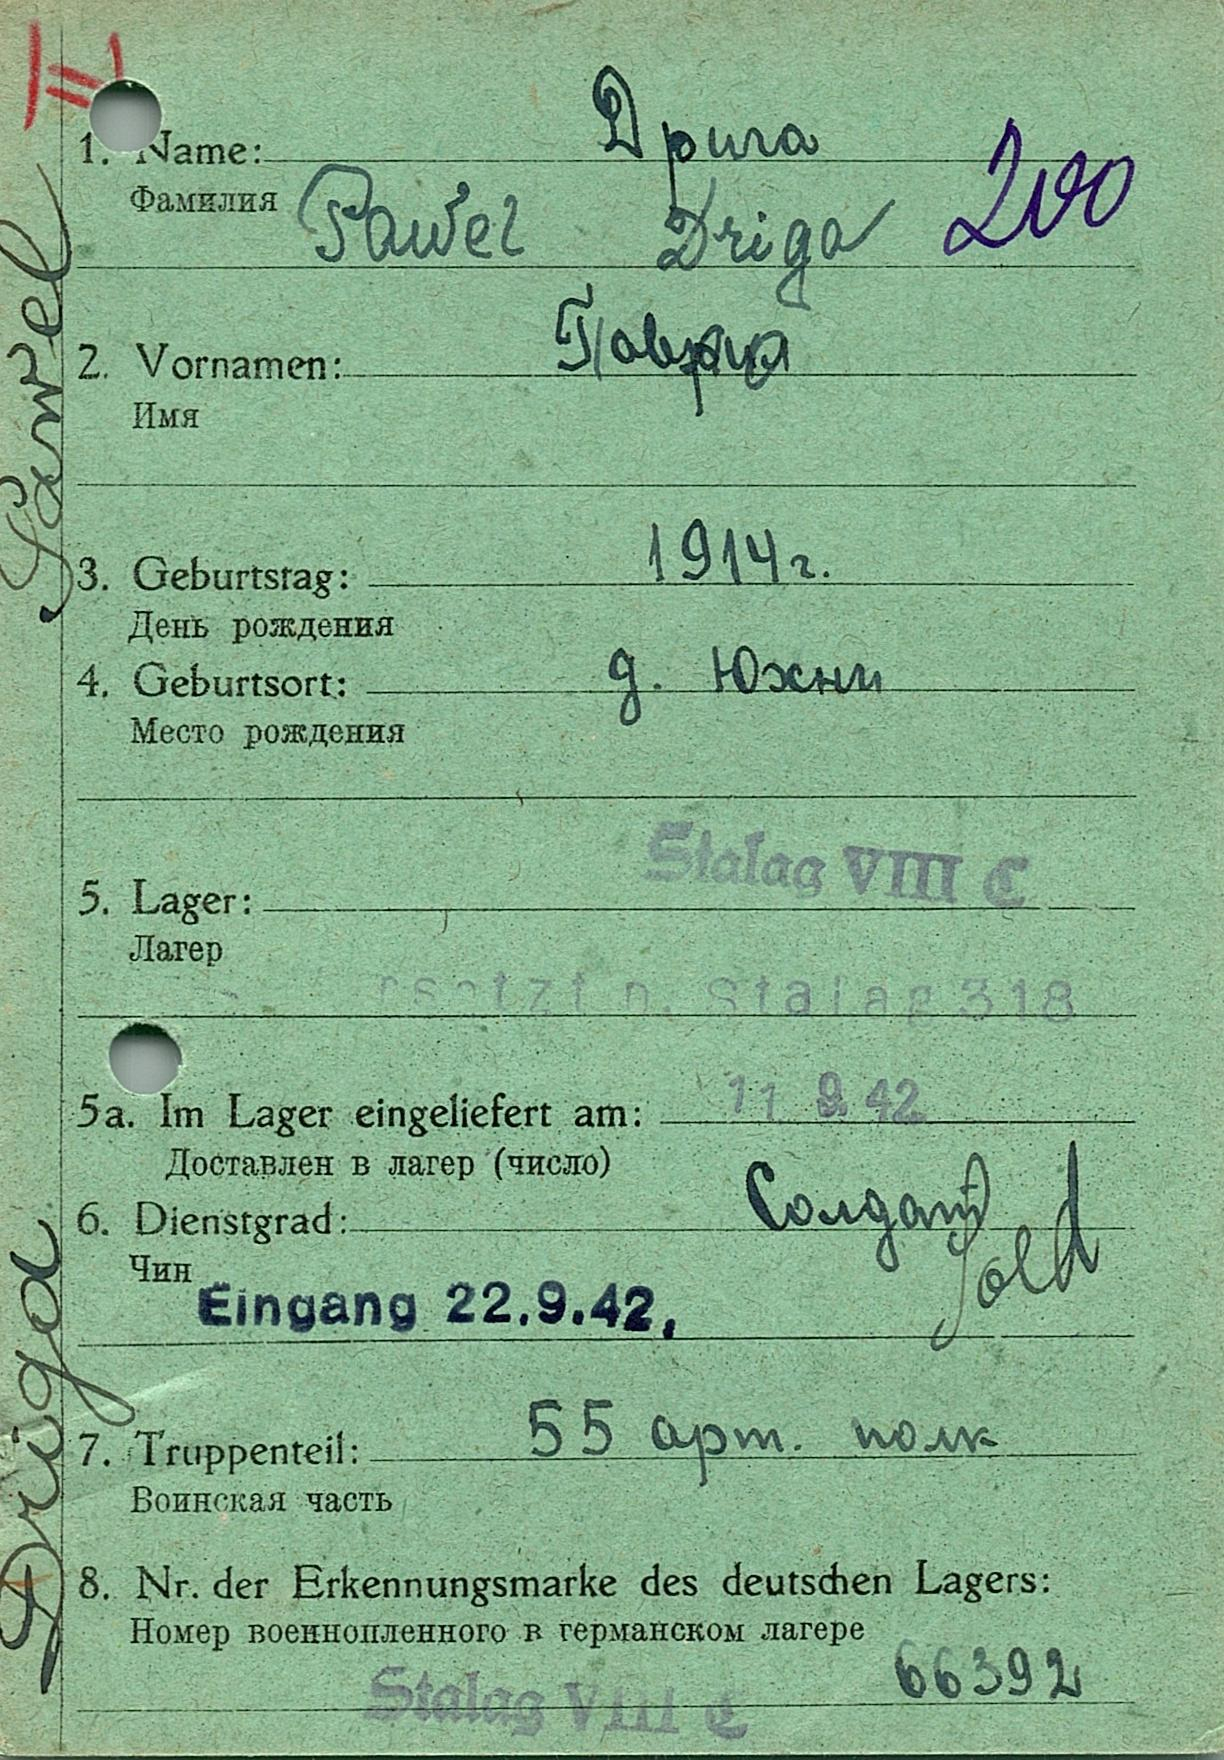 1. Name: Дрига
Фамилия
Pawel Driga 200
2. Vornamen:
Имя
3. Geburtstag: 1914 г.
День рождения
4. Geburtsort: д. Южни
Место рождения
Stalag VIII C
5. Lager:
Лагер
rsetzt n. Stalag 318
5a. Im Lager eingeliefert am: 11 9. 42
Доставлен в лагер (число)
6. Dienstgrad: Солдат
Чин Sold
Eingang 22.9.42.
7. Truppenteil: 55 арт. полк
Воинская часть
8. Nr. der Erkennungsmarke des deutschen Lagers:
Номер военнопленного в германском лагере
66392
Stalag VIII C
Driga Pawel